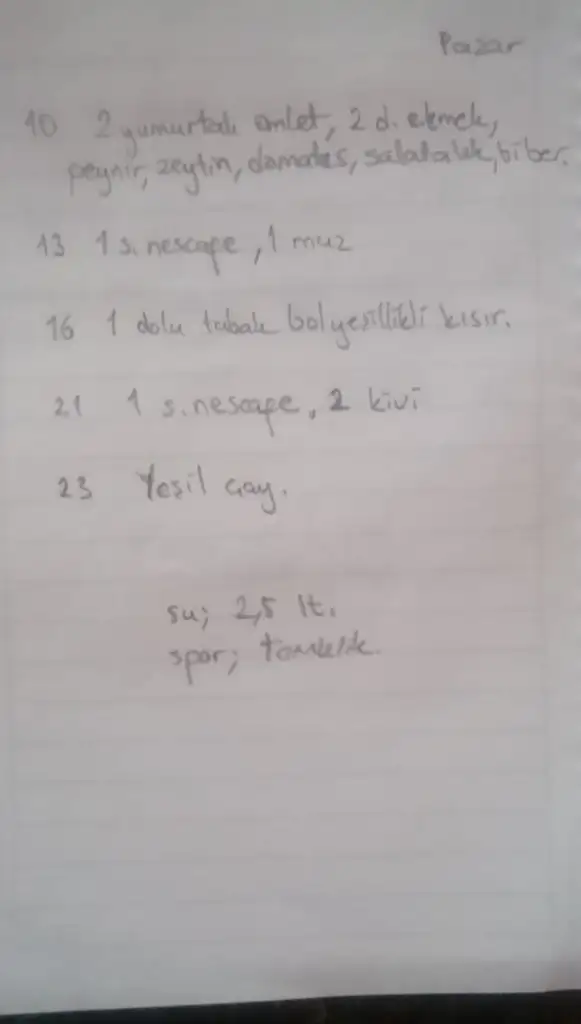 Pazar
10 2 yumurtalı omlet, 2 d. ekmek,
peynir, zeytin, domates, salatalık, biber.
13 1 s. nescape, 1 muz
16 1 dolu tabak bol yesillikli kısır.
21 1 s. nescape, 2 kivi
23 Yesil çay.
su; 2,5 lt.
spor; tembellik.